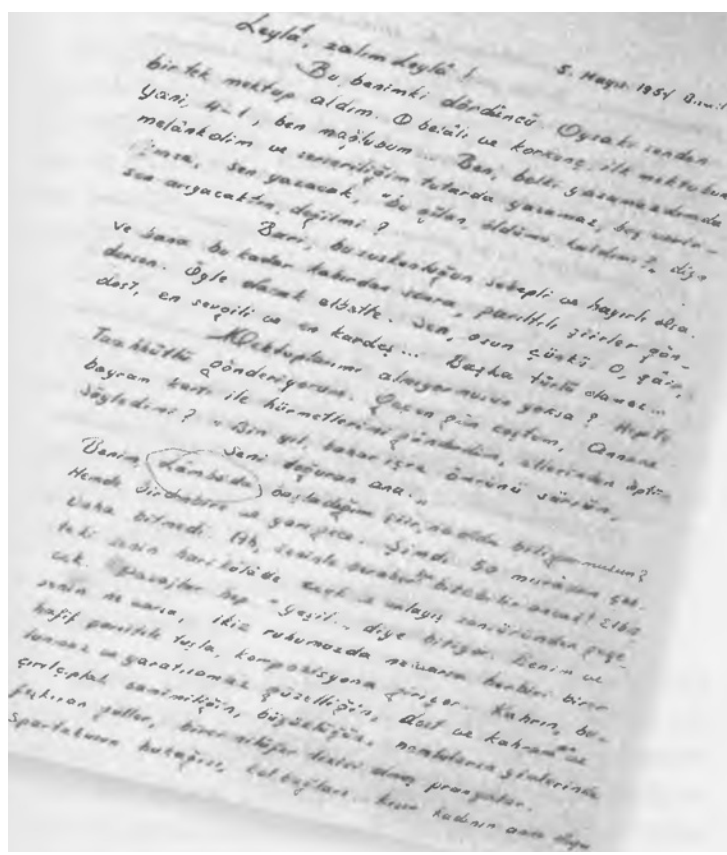 Leylâ, zalim Leylâ!
5. Mayıs 1954
Bu, benimki dördüncü. Oysaki senden
bir tek mektup aldım. O belâlı ve korkunç ilk mektubun
Yani, 4-1, ben mağlubum... Ben, belki yazamazdım da
melânkolim ve serseriliğim tutar da yazamaz, boş verir-
dimse, sen yazacak, "bu oğlan, öldü mü, kaldı mı?" diye
sen arıyacaktın, değil mi?
Bari, bu suskunluğun sebepli ve hayırlı olsa.
ve bana bu kadar kahırdan sonra, parıltılı şiirler gön-
dersen. Öyle olacak elbette. Sen, osun çünkü. O, şâir,
dost, en sevgili ve en kardeş... Başka türlü olamaz...
Mektuplarımı almıyor musun yoksa? Hepsi
Taahhütlü gönderiyorum. Geçen gün coştum, Annene
bayram kartı ile hürmetlerimi gönderdim, ellerinden öptüm
Söyledi mi? "Bin yıl, bahar içre ömrünü sürsün,
Seni doğuran ana"
Benim, Lâmbo'da başladığım şiir, ne oldu biliyor musun?
Hem de bir çabın ve yarı gece. Şimdi 50 mısraı
daha bitmedi. Ah, seninle beraber bitebilir ancak! Elbet-
teki senin harikûlâde zevk ve anlayış sansüründen geçe-
cek. Pasajlar hep "Yeşil.." diye bitiyor. Benim ve
senin ne varsa, ikiz ruhumuzda ne varsa herbiri birer
hafif pastel tuşla, kompozisyona giriyor. Kahrın, bu-
lunmaz ve yaratılamaz güzelliğin, dost ve kahraman ve
çırılçıplak samimiliğin, büyüklüğün,
fışkıran güller, birer nilüfer dizisi olmuş prangalar.
Spartaküsün bukağısı, kolbağları... hısır kadının